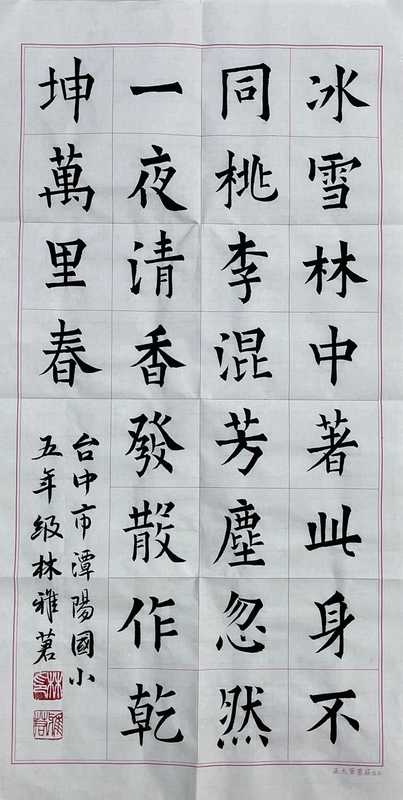 冰雪林中著此身不
同桃李混芳塵忽然
一夜清香發散作乾
坤萬里春
台中市潭陽國小
五年級林雅茗